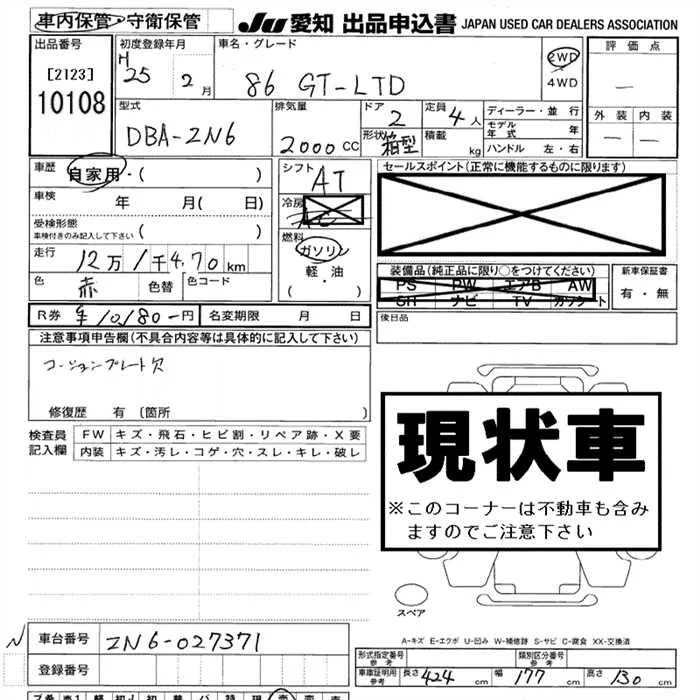 車内保管・守衛保管 JU 愛知 出品申込書 JAPAN USED CAR DEALERS ASSOCIATION
出品番号 [2123] 10108
初度登録年月 H 25 2月
車名・グレード 86 GT-LTD
2WD
4WD
評価点 —
外装 内装
— —
型式 DBA-ZN6
排気量 2000cc
ドア 2
形状 箱型
定員 4人
積載 kg
ディーラー・並行
モデル年式 年
ハンドル 左・右
車歴 自家用・( )
シフト AT
セールスポイント(正常に機能するものに限ります)
車検 年 月( 日)
冷房 AC
受検形態
車検付きのみ記入して下さい ( )
燃料 ガソリン
軽・油
・( )
走行 12万1千470km
装備品(純正品に限り○をつけてください)
PS PW エアB AW
SH ナビ TV カワシート
新車保証書
有・無
色 赤 色替 色コード
後日品
R券 ¥10,180-円 名変期限 月 日
注意事項申告欄(不具合内容等は具体的に記入して下さい)
コーションプレート欠
修復歴 有 [箇所 ]
検査員記入欄
FW キズ・飛石・ヒビ割・リペア跡・X要
内装 キズ・汚レ・コゲ・穴・スレ・キレ・破レ
現状車
※このコーナーは不動車も含み
ますのでご注意下さい
スペア
A-キズ E-エクボ U-凹み W-補修跡 S-サビ C-腐食 XX-交換済
N 車台番号 ZN6-027371
登録番号
形式指定番号 参考 類別区分番号 参考
車庫証明用 参考 長さ 424cm 幅 177cm 高さ 130cm